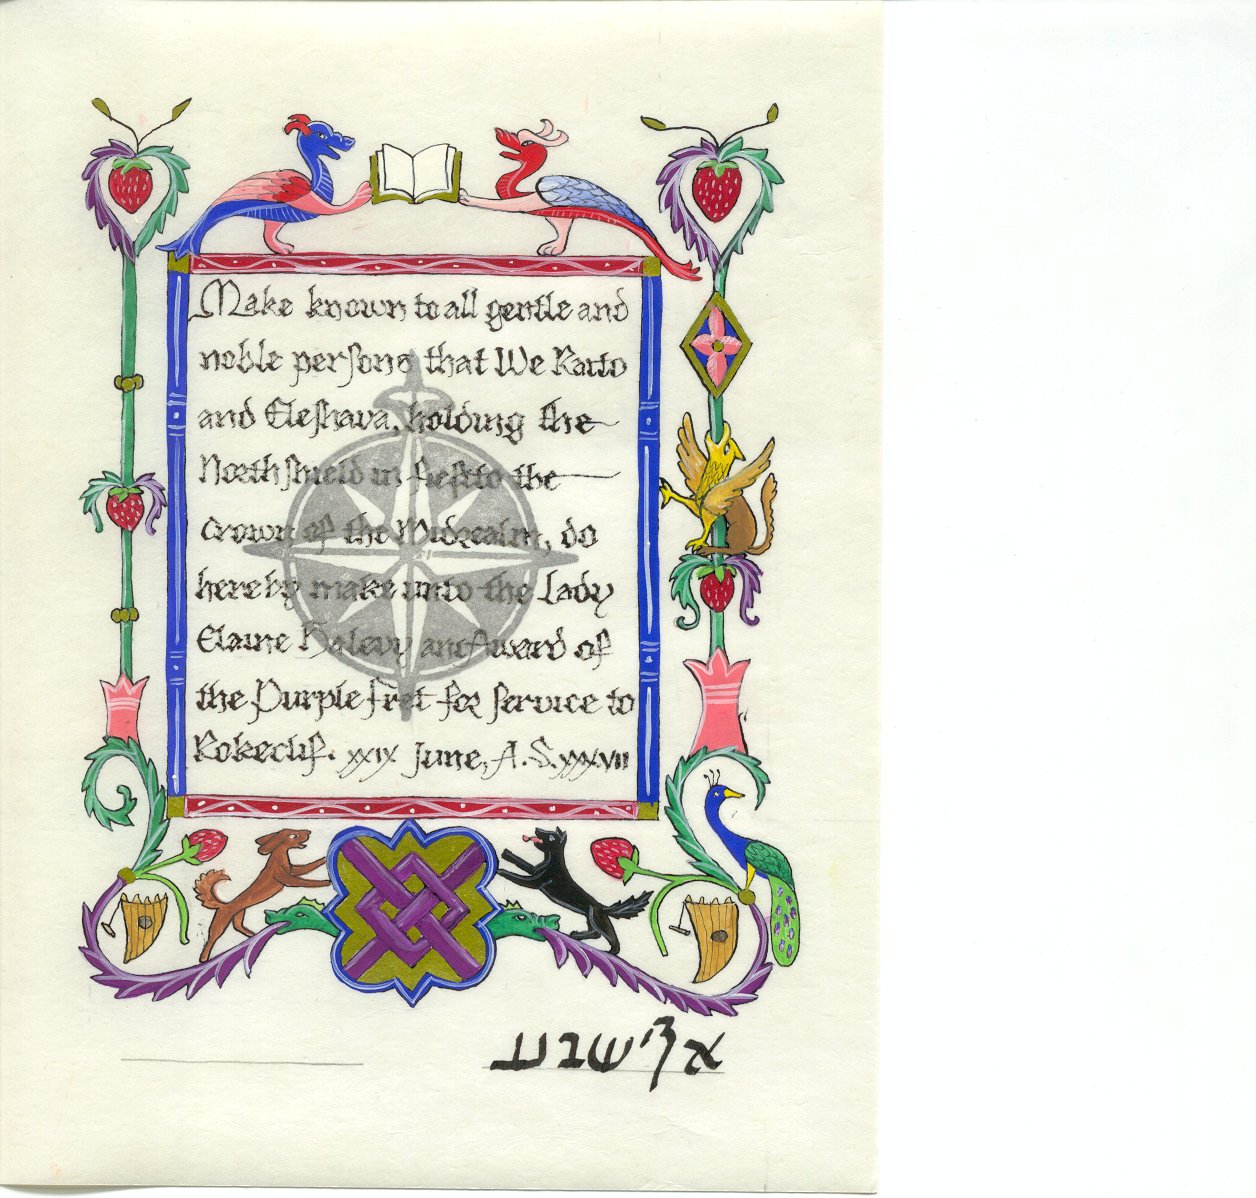 Make known to all gentle and
noble persons that We Ratto
and Eleshava, holding the
Northshield in fief to the
Crown of the Midrealm, do
hereby make unto the Lady
Elaine Halevy an Award of
the Purple Fret for service to
Rokeclif. xxix June, A.S. xxxvii
אלישבע